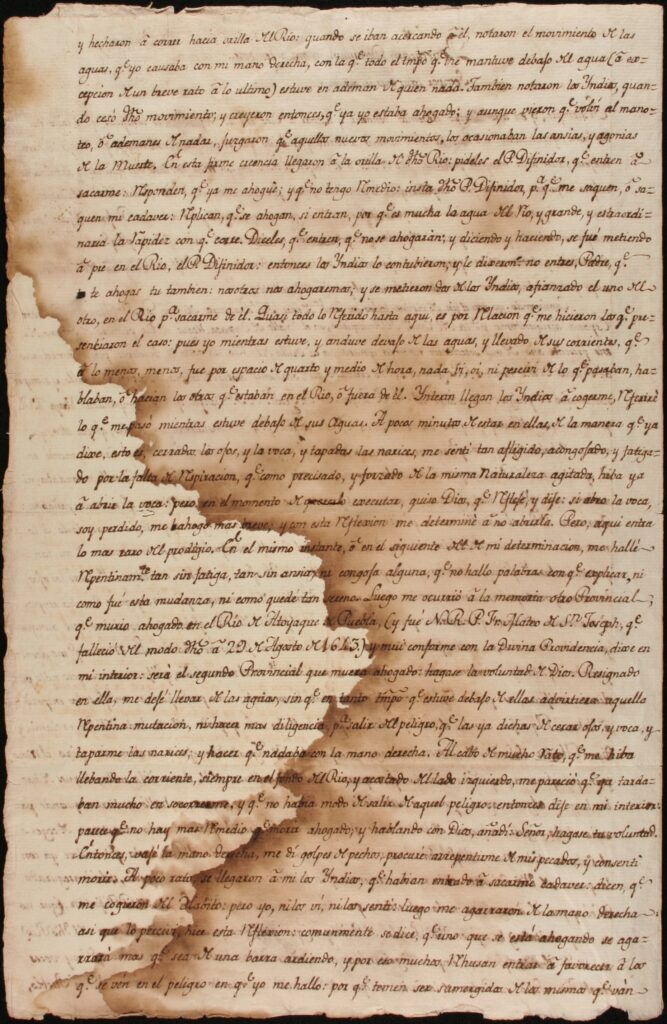 y hecharon â correr hacia orilla del Rio: quando se iban acercando â êl, notaron el movimiento de las
aguas, q.e yo causaba con mi mano derecha, con la q.e todo el tmpô q.e me mantuve debaxo del agua (â ex-
cepcion de un breve rato â lo ultimo) estuve en ademan de quien nada. Tambien notaron los Yndios, quan-
do ceso dhô movimiento; y creyeron entonces, q.e ya yo estaba ahogado; y aunque vieron q.e volvi al mano-
teo, ô ademanes de nadar, juzgaron q.e aquellos nuevos movimientos, los ocasionaban las ansias, y agonias
de la Muerte. En esta firme creencia llegaron â la orilla de dhô Rio: pideles el P. Difinidor, q.e entren â
sacarme: Responden, q.e ya me ahoguè; y q.e no tengo Remedio: insta dhô P. Difinidor, p.a q.e me saquen, ô sa-
quen mi cadaver: Replican, q.e se ahogan, si entran, por q.e es mucha la agua del Rio, y grande, y extraordi-
naria la Rapidez con q.e corre. Diceles, q.e entren, q.e no se ahogaràn; y diciendo y haciendo, se fuê metiendo
â pie en el Rio, el P. Difinidor: entonces los Yndios lo contubieron, y le dixeron: no entres, Padre, q.e
te ahogas tu tambien: nosotros nos ahogaremos; y se metieron dos de los Yndios, afianzado el uno del
otro, en el Rio p.a sacarme de êl. Quasi todo lo Referido hasta aqui, es por Relacion q.e me hicieron los q.e pre-
senciaron el caso: pues yo mientras estuve, y anduve devaxo de las aguas, y llevado de sus corrientes, q.e
â lo menos, menos, fue por espacio de quarto y medio de hora, nada vi, oi, ni percivi de lo q.e pasaban, ha-
blaban, ô hacian los otros q.e estaban en el Rio, ô fuera de êl. Ynterin llegan los Yndios â cogerme, Referirè
lo q.e me pasò mientras estuve debaxo de sus Aguas. A pocos minutos de estar en ellas, de la manera q.e ya
dixe, esto es, cerrados los ojos, y la voca, y tapadas las narices, me senti tan afligido, acongojado, y fatiga-
do por la falta de Respiracion, q.e como precisado, y forzado de la misma Naturaleza agitada, hiba ya
â abrir la voca: pero en el momento de executar, quiso Dios, q.e Reflexe, y dixe: si abro la voca,
soy perdido, me ahogo mas breve; y con esta Reflexion me determinè â no abrirla. Pero, aqui entra
lo mas raro del prodigio. En el mismo instante, ô en el siguiente de mi determinacion, me hallè
Repentinam.te tan sin fatiga, tan sin ansia, ni congoja alguna, q.e no hallo palabras con q.e explicar, ni
como fuè esta mudanza, ni como quedè tan sereno. Luego me ocurriô â la memoria otro Provincial,
q.e murio ahogado en el Rio de Atoyaque de Puebla, (y fuê N. R. P. Fr. Mateo de S.n Joseph, q.e
falleciò del modo dhô â 29 de Agosto de 1643) y mui conforme con la Divina Providencia, dixe en
mi interior: serà el segundo Provincial que muere ahogado: hagase la voluntad de Dios. Resignado
en ella, me dexè llevar de las aguas, sin q.e en tanto tmpô q.e estuve debaxo de ellas advirtiera aquella
Repentina mutacion, ni hacer mas diligencia p.a salir del peligro, q.e las ya dichas de cerrar ojos, y voca, y
taparme las narices; y hacer q.e nadaba con la mano derecha. Al cabo de mucho rato, q.e me hiba
llebando la corriente, siempre en el fondo del Rio, y acostado del lado izquierdo, me pareciò q.e ya tarda-
ban mucho en socorrerme, y q.e no habia modo de salir de aquel peligro: entonces dixe en mi interior:
parece q.e no hay mas Remedio q.e morir ahogado; y hablando con Dios, añadi: Señor, hagase tu voluntad.
Entonces, vaxè la mano derecha, me di golpes de pechos, procurè arrepentirme de mis pecados, y consenti
morir. A poco rato, se llegaron â mi los Yndios, q.e habian entrado â sacarme cadaver: dicen, q.e
me cogieron del Abito: pero yo, ni los vi, ni los senti: luego me agarraron de la mano derecha:
asi que lo percivi, hice esta Reflexion: comunmente se dice, q.e uno que se està ahogando se aga-
rrarà mas q.e sea de una barra ardiendo, y por eso muchos Rehusan entrar â favorecer â los
q.e se ven en el peligro en q.e yo me hallo: por q.e temen ser sumergidos de los mismos q.e vàn